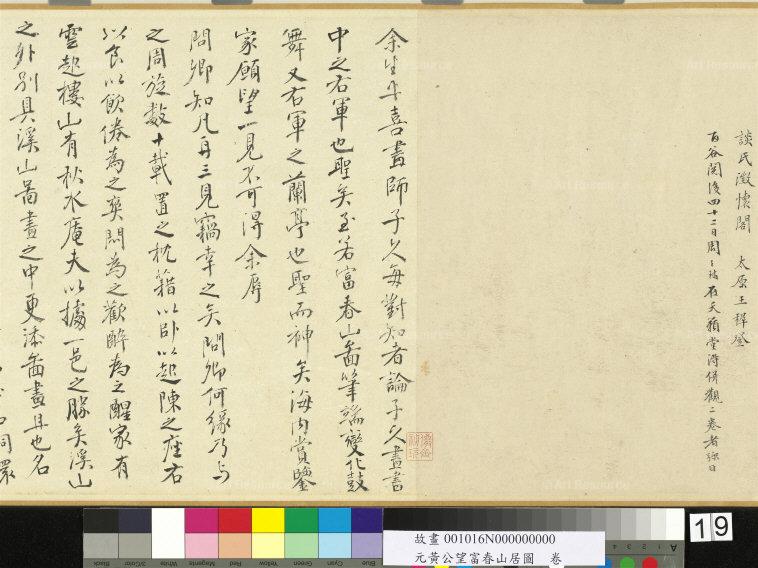 談氏澂懷閣　太原王穉登
百谷閱後四十二日周天球在天籟堂得併觀二卷者綵日
余生平喜畫師子久每對知者論子久畫書
中之右軍也聖矣至若富春山啚筆端變化鼓
舞又右軍之蘭亭也聖而神矣海內賞鑒
家願望一見不可得余辱
問卿知凡再三見竊幸之矣問卿何緣乃與
之周旋數十載置之枕籍以臥以起陳之座右
以食以飲倦為之爽悶為之歡醉為之醒家有
雲起樓山有秋水菴夫以據一邑之勝矣溪山
之外別具溪山啚畫之中更添啚畫且也名
故畫 001016N000000000
元黃公望富春山居圖　卷
19
Black
3/Color
White
Magenta
Red
Yellow
Green
Cyan
Blue
Art Resource